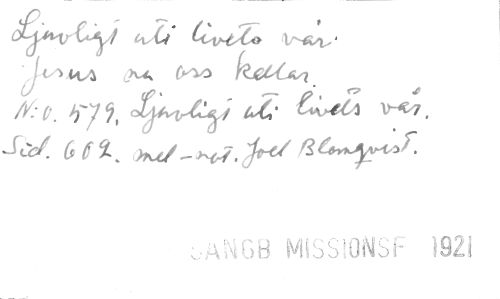 Ljuvligt uti livets vår.
Jesus na oss kallar.
N:o. 579. Ljuvligt uti livets vår.
Sid. 602. mel-not. Joel Blomqvist.
SANGB MISSIONSF 1921